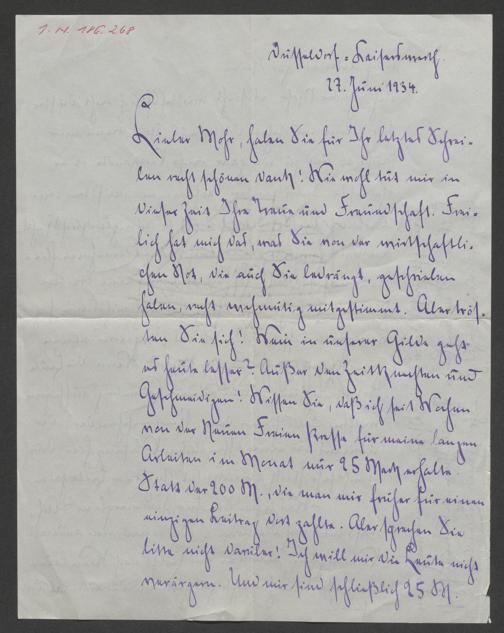 J. N. 186.268
Düsseldorf-Kaiserswerth.
27. Juni 1934.
Lieber Mohr, haben Sie für Ihr letztes Schrei-
ben recht schönen Dank! Wie wohl tut mir in
dieser Zeit Ihre Treue und Freundschaft. Frei-
lich hat mich das, was Sie von der wirtschaftli-
chen Not, die auch Sie bedrängt, geschrieben
haben, recht wehmütig mitgestimmt. Aber trös-
ten Sie sich! Wem in unserer Gilde geht
es heute besser? Außer den Zeitknechten und
Geschmeidigen! Wissen Sie, daß ich seit Wochen
von der Neuen Freien Presse für meine langen
Arbeiten im Monat nur 25 Mark erhalte.
Statt der 200 M., die man mir früher für einen
einzigen Beitrag dort zahlte. Aber sprechen Sie
bitte nicht darüber! Ich will mir die Leute nicht
verärgern. Und mir sind schließlich 25 M.